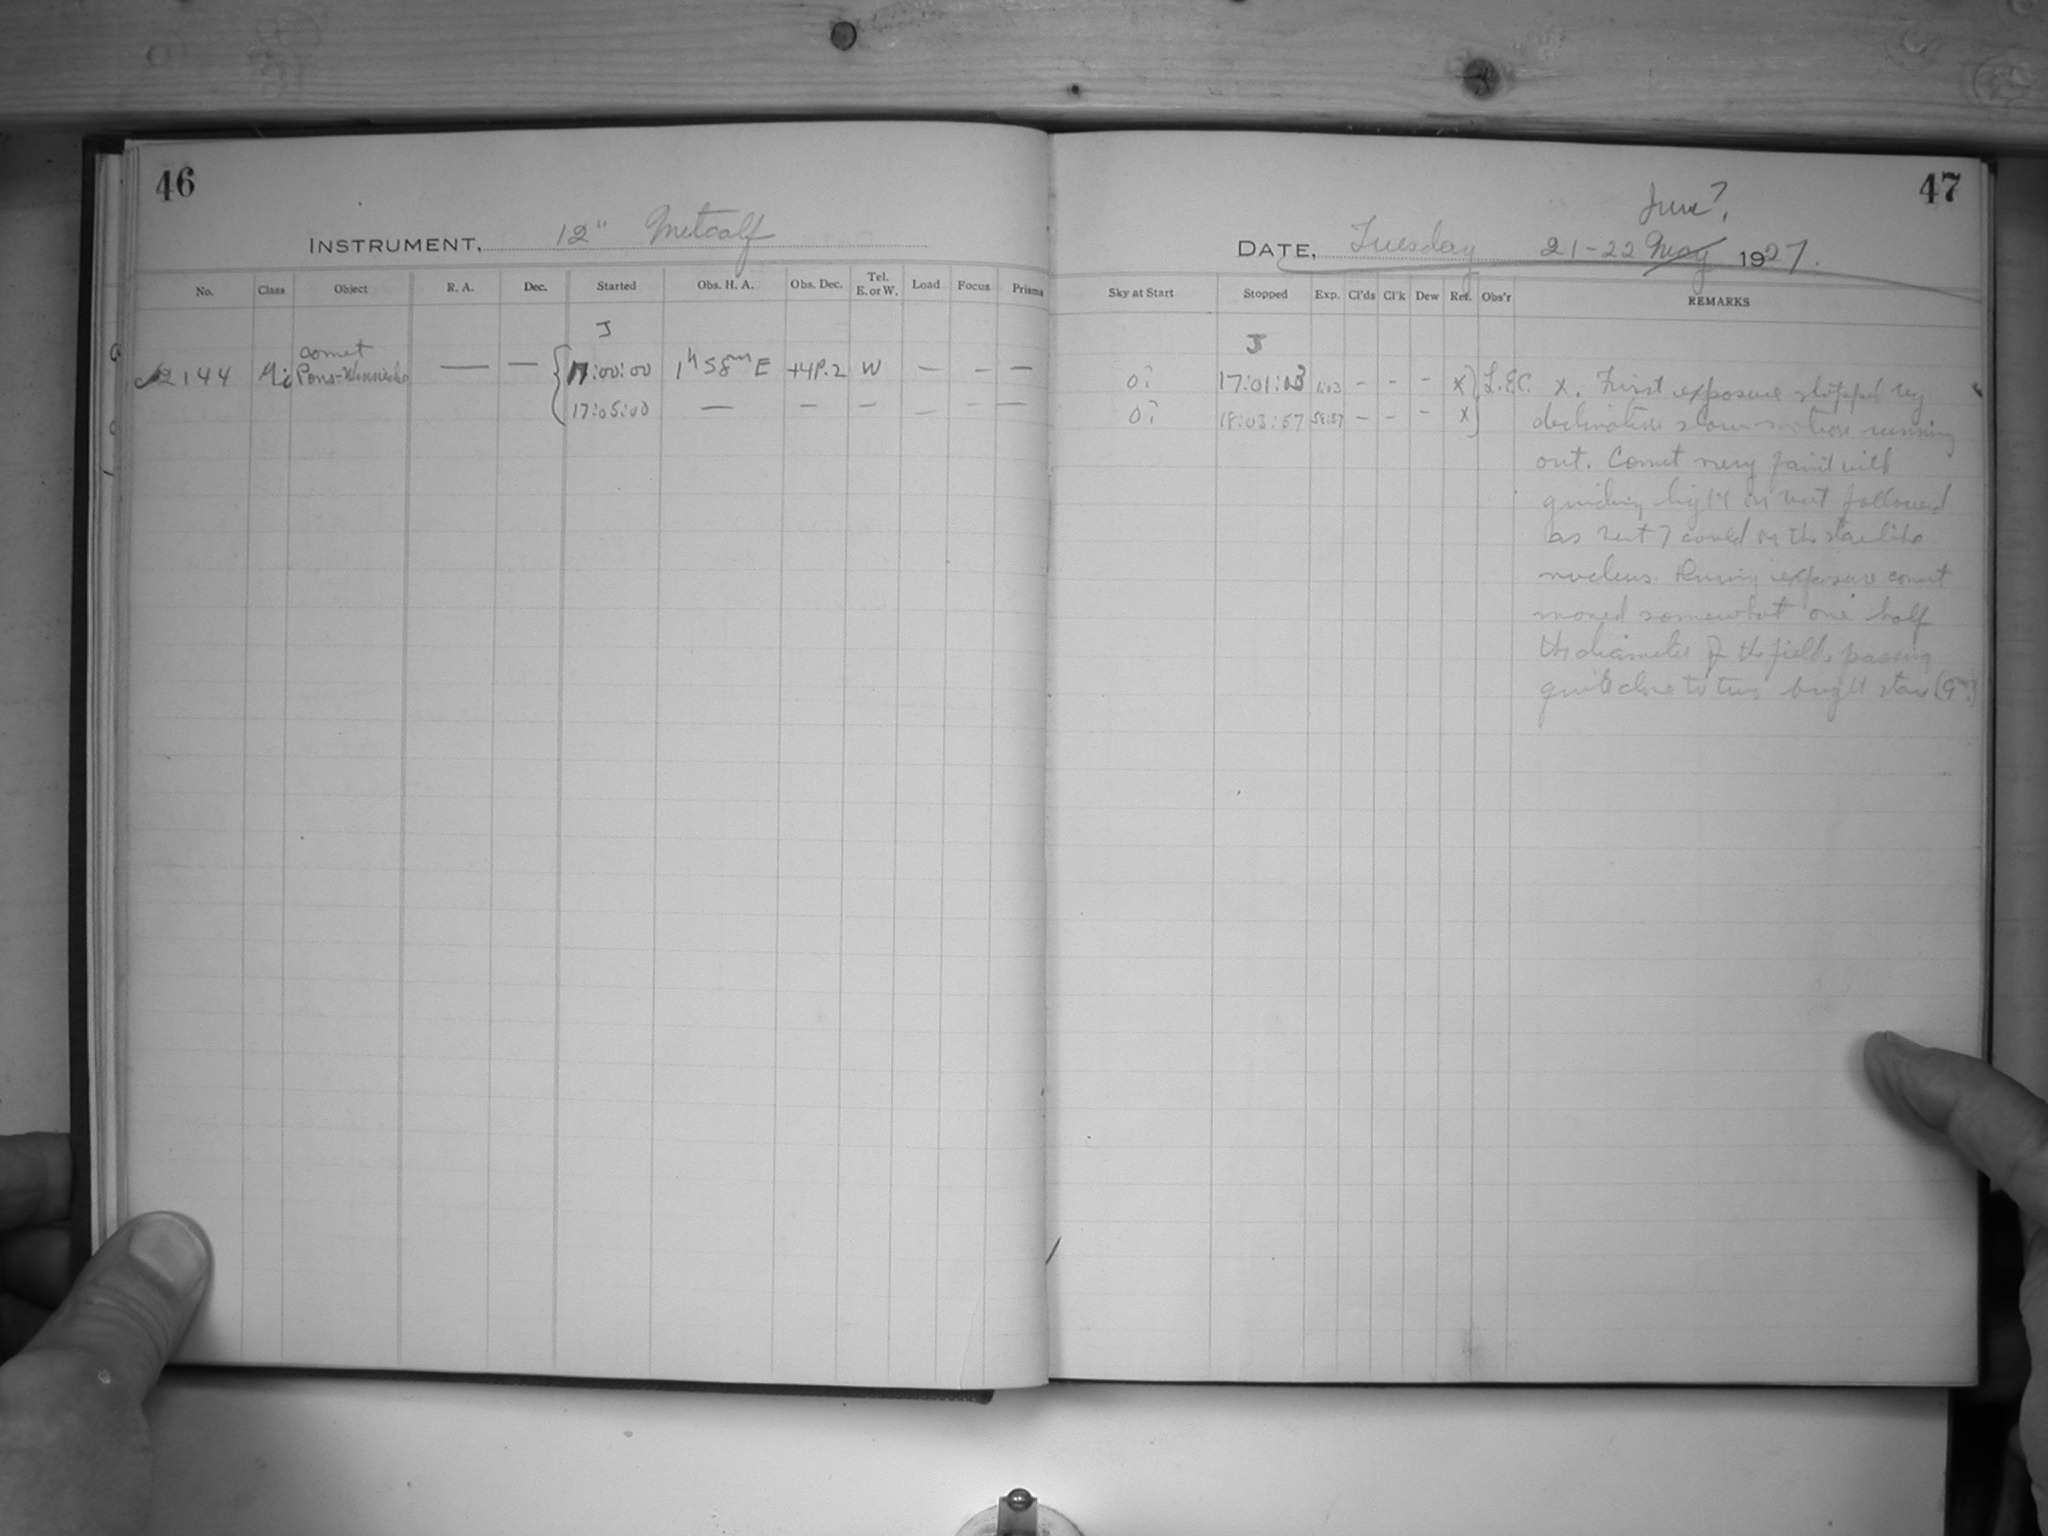 46
INSTRUMENT, 12" Metcalf
No. Class Object R. A. Dec. Started Obs. H. A. Obs. Dec. Tel. E. or W. Load Focus Prisms
J
comet
2144 Pons-Winnecke — — 17:00:00 1h 58m E +49.2 W — - —
17:05:00 — — — — - —
47
June?,
DATE, Tuesday 21-22 May 1927.
Sky at Start Stopped Exp. Cl'ds Cl'k Dew Ref. Obs'r REMARKS
J
17:01:03 1:03 - - - x x. First exposure stopped by
18:03:57 58:57 - - - x declination slow motion running
out. Comet very faint with
guiding light on but followed
as best I could on the starlike
nucleus. During exposure comet
moved somewhat one half
the diameter of the field, passing
quite close to two bright stars (9m?)